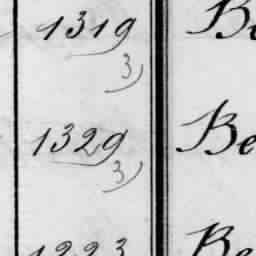 1319 Be
3)
1329 Be
3)
1223 Be